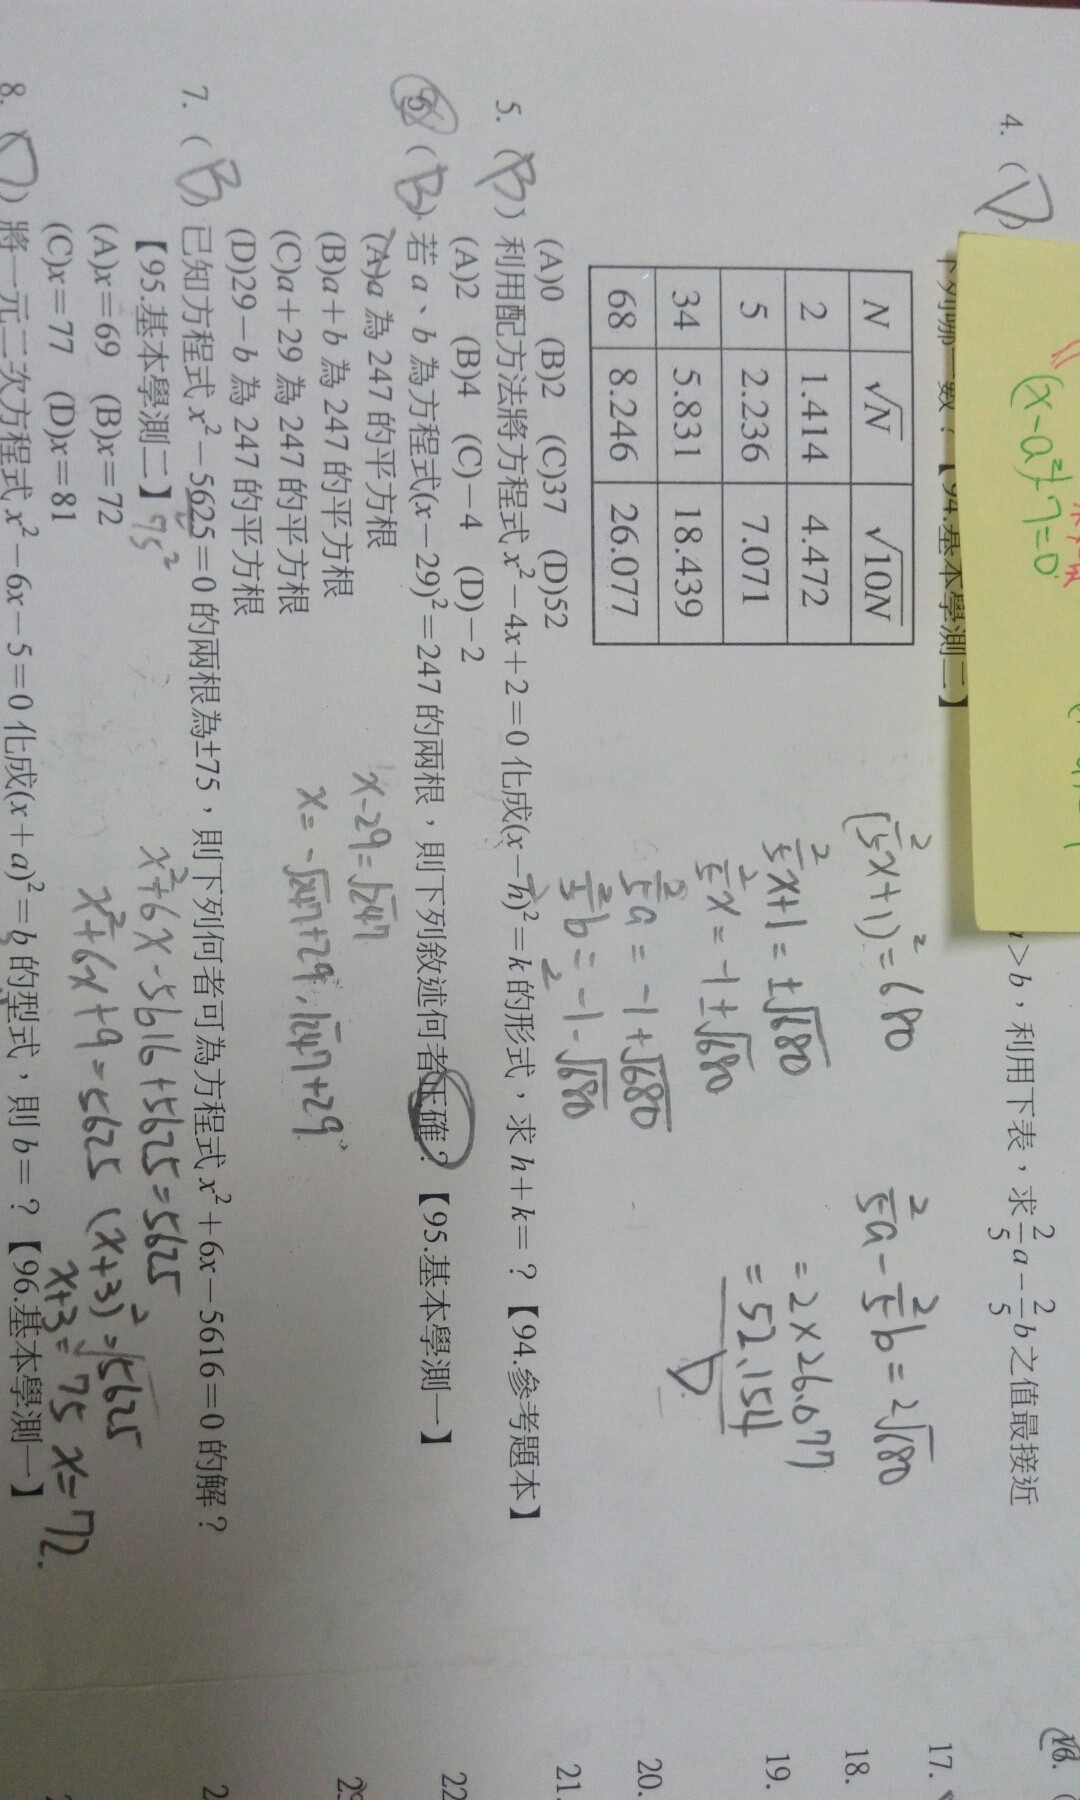 (x-a)²+7=0
4. (D)
a>b，利用下表，求2/5a-2/5b之值最接近
下列哪一數？【94.基本學測二】
N √N √10N
2 1.414 4.472
5 2.236 7.071
34 5.831 18.439
68 8.246 26.077
(2/5x+1)²=680
2/5x+1=±√680
2/5x=-1±√680
2/5a=-1+√680
2/5b=-1-√680
2/5a-2/5b=2√680
=2×26.077
=52.154
D
(A)0 (B)2 (C)37 (D)52
5. (B) 利用配方法將方程式 x²-4x+2=0 化成(x-h)²=k 的形式，求 h+k=？【94.參考題本】
(A)2 (B)4 (C)-4 (D)-2
6. (B) 若 a、b 為方程式(x-29)²=247 的兩根，則下列敘述何者正確？【95.基本學測一】
(A)a 為 247 的平方根
(B)a+b 為 247 的平方根
(C)a+29 為 247 的平方根
(D)29-b 為 247 的平方根
x-29=√247
x=-√247+29,√247+29
7. (B) 已知方程式 x²-5625=0 的兩根為±75，則下列何者可為方程式 x²+6x-5616=0 的解？
【95.基本學測二】75²
(A)x=69 (B)x=72
(C)x=77 (D)x=81
x²+6x-5616+5625=5625
x²+6x+9=5625 (x+3)²=√5625
x+3=75 x=72.
8. 將一元二次方程式 x²-6x-5=0 化成(x+a)²=b 的型式，則 b=？【96.基本學測一】
16.
17.
18.
19.
20.
21.
22